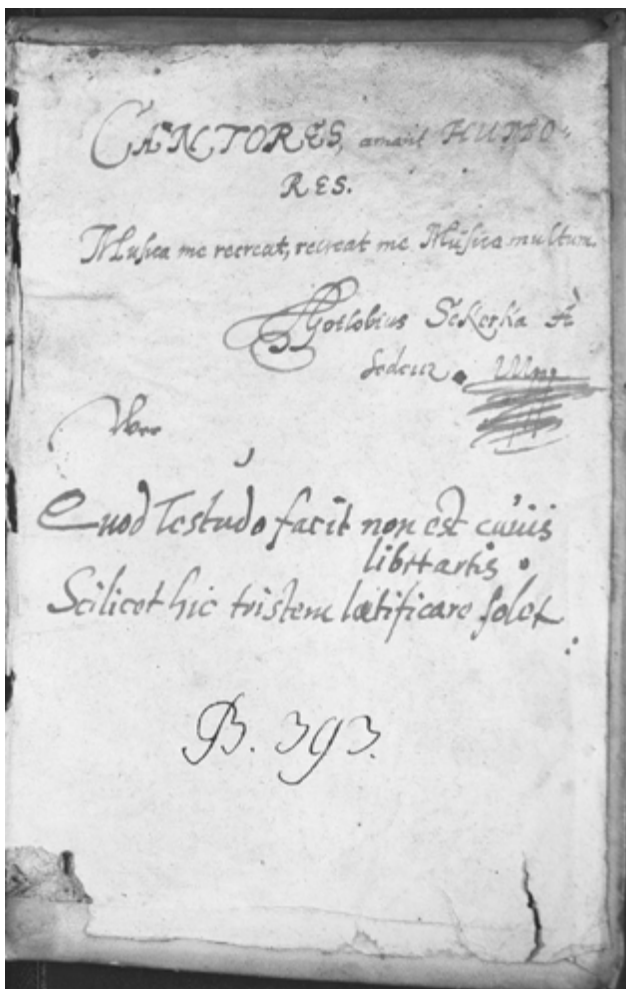 CANTORES, amant HUMO-
RES.
Musica me recreat, recreat me Musica multum.
Gotlobius Sekerka à
Sedcuz
Quod Testudo facit non est cuius
libet artis.
Scilicet hic tristem lætificare solet
B. 393.